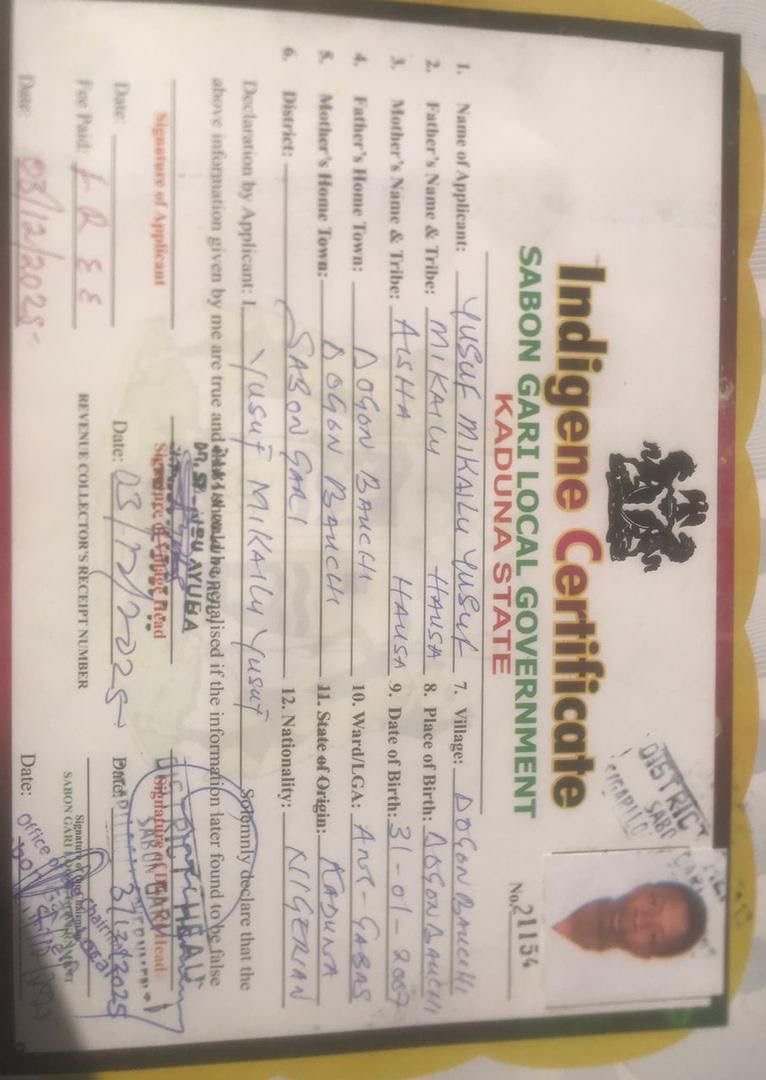 Indigene Certificate
SABON GARI LOCAL GOVERNMENT
KADUNA STATE
No. 21154
DISTRICT
1. Name of Applicant: YUSUF MIKAILU YUSUF
2. Father's Name & Tribe: MIKAILU HAUSA
3. Mother's Name & Tribe: AISHA HAUSA
4. Father's Home Town: DOGON BAUCHI
5. Mother's Home Town: DOGON BAUCHI
6. District: SABON GARI
7. Village: DOGON BAUCHI
8. Place of Birth: DOGON BAUCHI
9. Date of Birth: 31-01-2007
10. Ward/LGA: GABAS
11. State of Origin: KADUNA
12. Nationality: NIGERIAN
Declaration by Applicant: I, YUSUF MIKAILU YUSUF Solemnly declare that the
above information given by me are true and that I should be penalised if the information later found to be false
Signature of Applicant
Date:
Signature of Village Head
AYUBA
Date: 03/12/2025
Signature of District Head
DISTRICT HEAD
SABON GARI
Date: 3/12/2025
Fee Paid: FREE
Date: 03/12/2025
REVENUE COLLECTOR'S RECEIPT NUMBER
Signature of the Chairman
SABON GARI LOCAL GOVERNMENT
Date:
Office of the